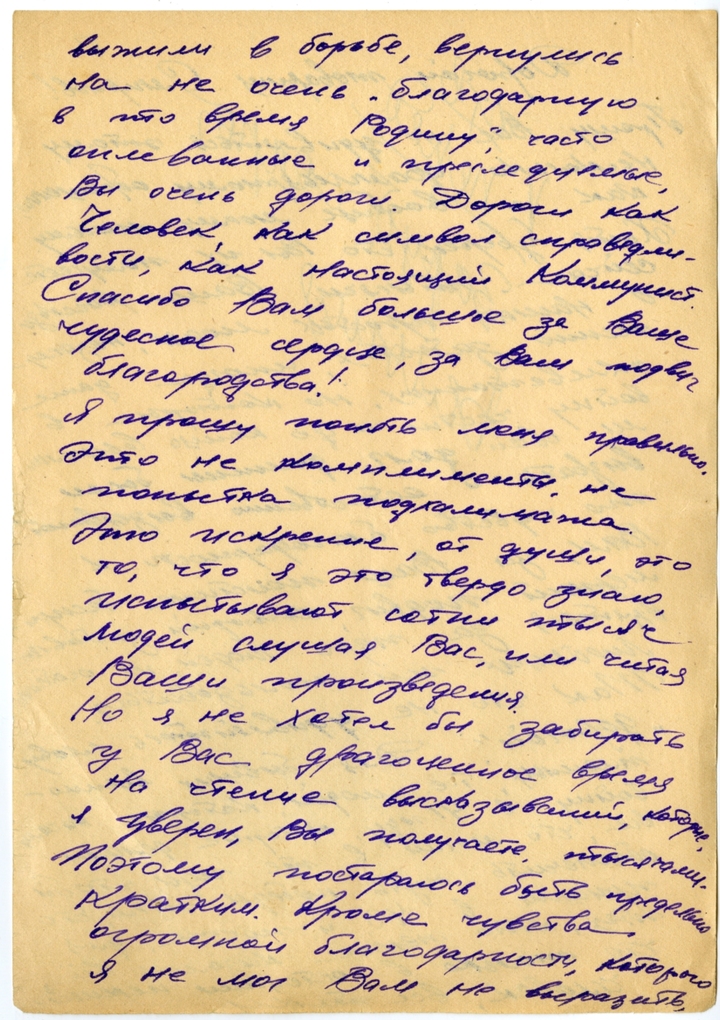 выжили в борьбе, вернулись
на не очень "благодарную
в то время Родину", часто
оплеванные и преследуемые,
Вы очень дороги. Дороги как
Человек, как символ справедли-
вости, как настоящий Коммунист.
Спасибо Вам большое за Ваше
чудесное сердце, за Ваш подвиг
благородства!
Я прошу понять меня правильно.
Это не комплименты, не
попытка подхалимажа.
Это искренне, от души, это
то, что я это твердо знаю,
испытывают сотни тысяч
людей слушая Вас, или читая
Ваши произведения.
Но я не хотел бы забирать
у Вас драгоценное время
на чтение высказываний, которые,
я уверен, Вы получаете, тысячами.
Поэтому постараюсь быть предельно
кратким. Кроме чувства
огромной благодарности, которого
я не мог Вам не выразить,